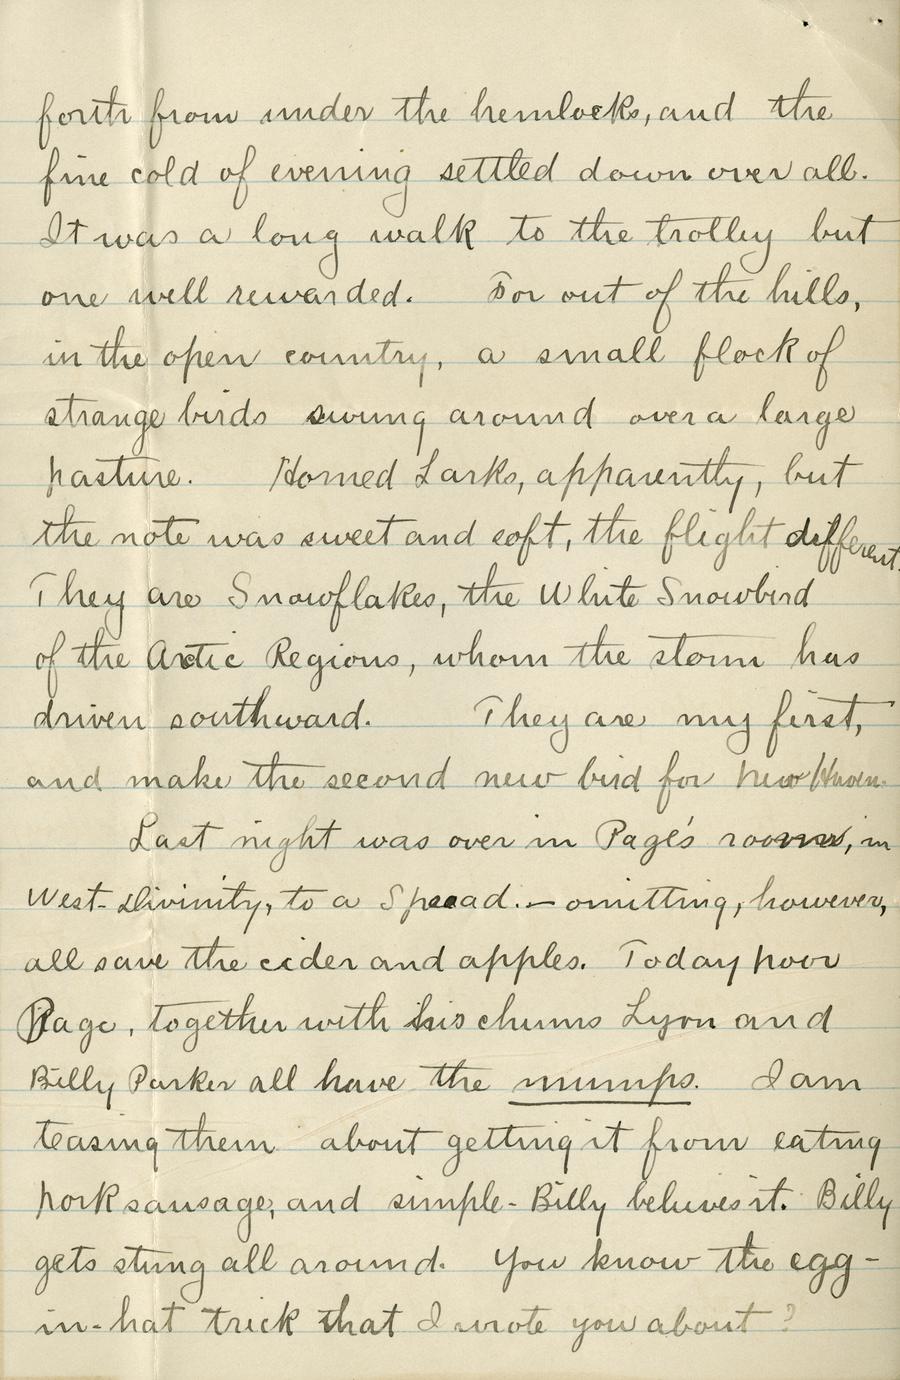 forth from under the hemlocks, and the
fine cold of evening settled down over all.
It was a long walk to the trolley but
one well rewarded. For out of the hills,
in the open country, a small flock of
strange birds swung around over a large
pasture. Horned Larks, apparently, but
the note was sweet and soft, the flight different.
They are Snowflakes, the White Snowbird
of the Arctic Regions, whom the storm has
driven southward. They are my first,
and make the second new bird for New Haven.
Last night was over in Page's rooms, in
West-Divinity, to a Spread. — omitting, however,
all save the cider and apples. Today poor
Page, together with his chums Lyon and
Billy Parker all have the mumps. I am
teasing them about getting it from eating
pork sausage, and simple-Billy believes it. Billy
gets stung all around. You know the egg-
in-hat trick that I wrote you about?